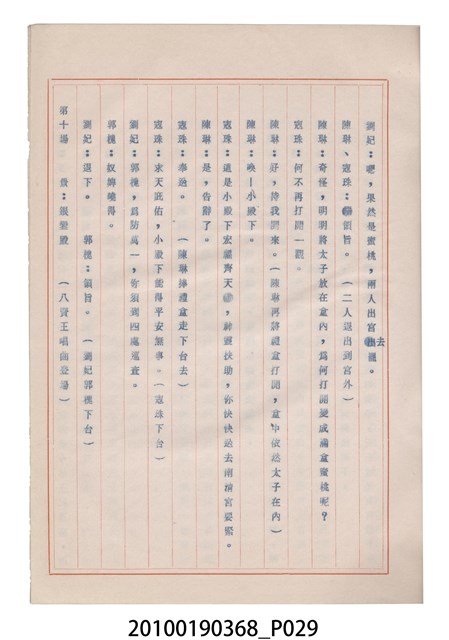 劉妃：嗯，果然是蜜桃，兩人出宮去罷。
陳琳、寇珠：領旨。（二人退出到宮外）
陳琳：奇怪，明明將太子放在盒內，爲何打開變成滿盒蜜桃呢？
寇珠：何不再打開一觀。
陳琳：好，待我開來。（陳琳再將禮盒打開，盒中依然太子在內）
陳琳：喚！小殿下。
寇珠：這是小殿下宏福齊天，神靈扶助，你快快送去南清宮要緊。
陳琳：是，告辭了。
寇珠：奉送。（陳琳捧禮盒走下台去）
寇珠：求天庇佑，小殿下能得平安無事。（寇珠下台）
劉妃：郭槐，爲防萬一，你須到四處巡查。
郭槐：奴婢曉得。
劉妃：退下。　郭槐：領旨。（劉妃郭槐下台）
第十場　景：銀鑾殿（八賢王唱曲登場）
20100190368_P029